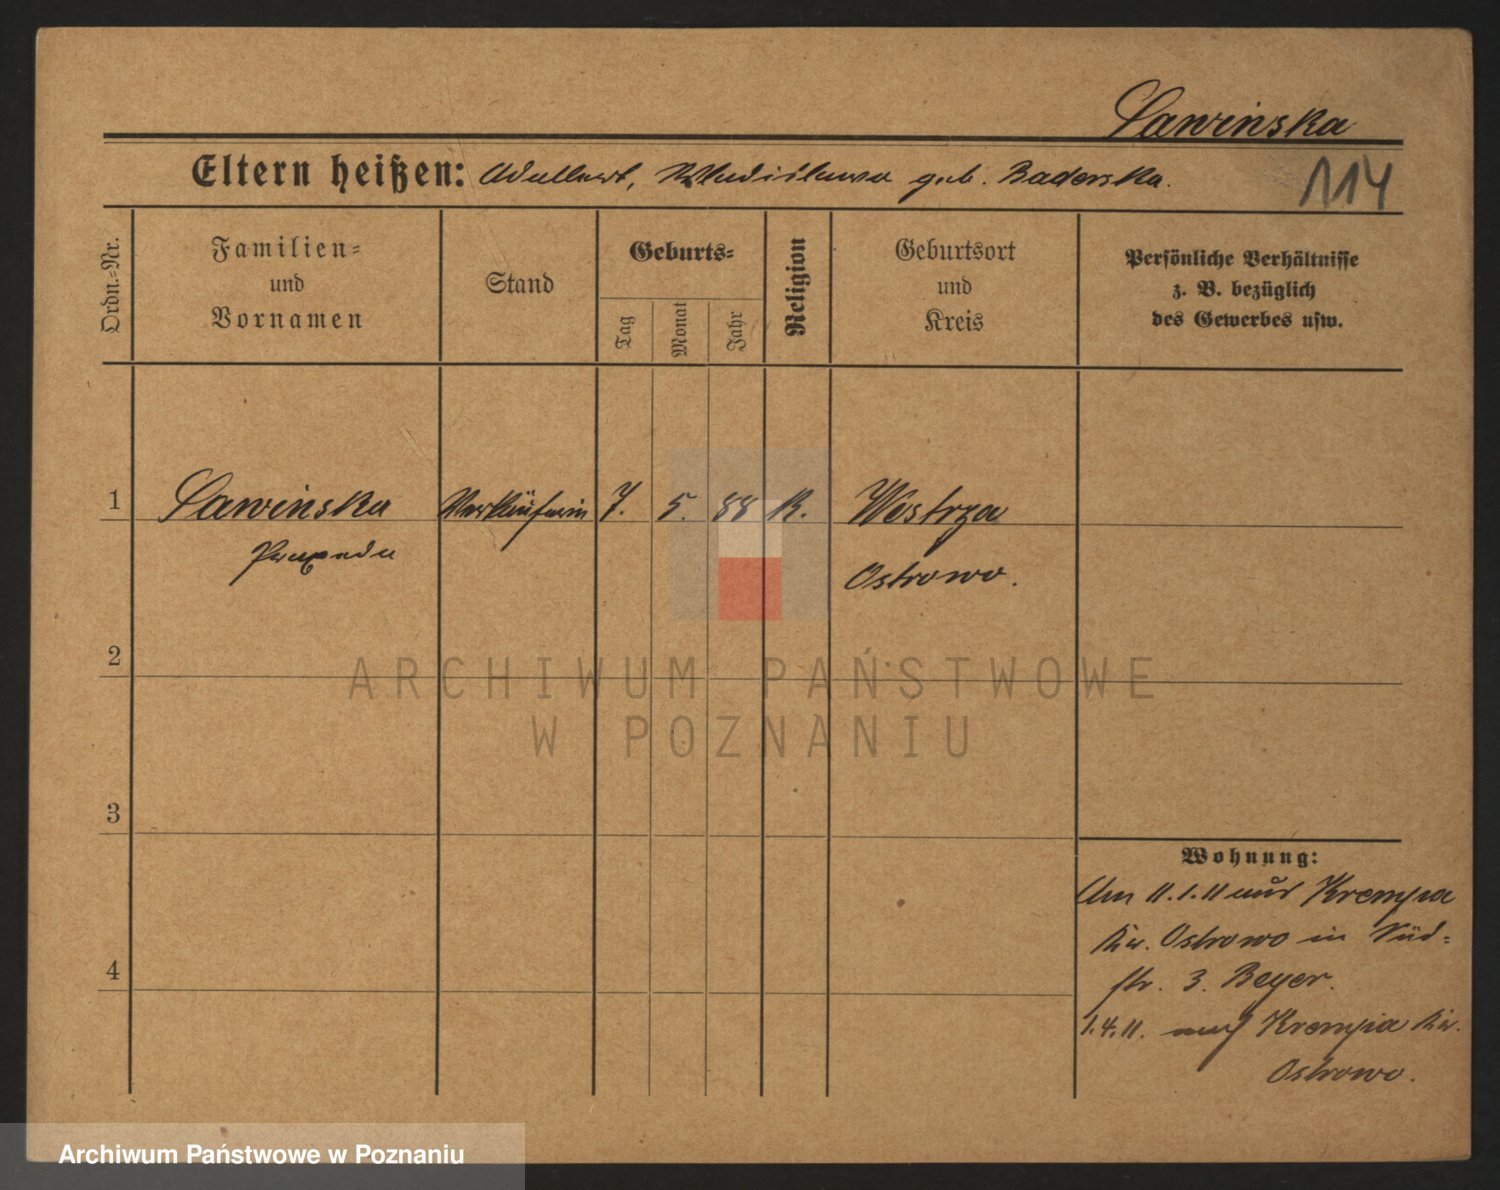 Sawinska
Eltern heißen: Adalbert, Wladislawa geb. Baderska.
114
Ordn.-Nr.
Familien-
und
Vornamen
Stand
Geburts-
Tag
Monat
Jahr
Religion
Geburtsort
und
Kreis
Persönliche Verhältnisse
z. B. bezüglich
des Gewerbes usw.
1 Sawinska Verkäuferin 7. 5. 88 K. Westrza
Praxeda Ostrowo.
2
3
4
Wohnung:
Am 11.1.11 aus Krempa
Kr. Ostrowo in Süd-
str. 3. Beyer.
1.4.11. nach Krempa Kr.
Ostrowo.
ARCHIWUM PAŃSTWOWE
W POZNANIU
Archiwum Państwowe w Poznaniu